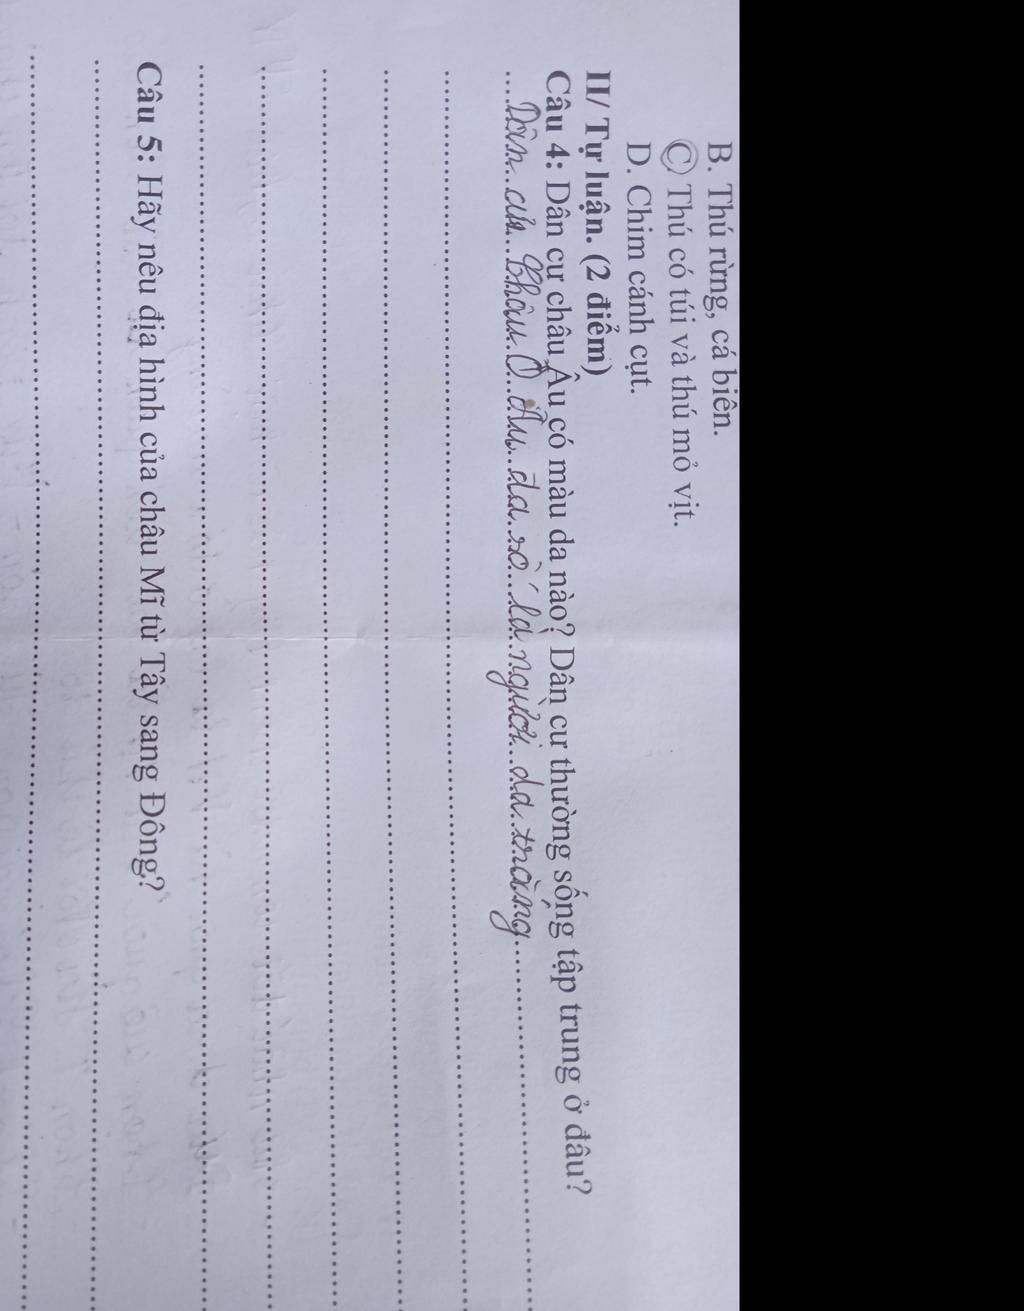 B. Thú rừng, cá biên.
C Thú có túi và thú mỏ vịt.
D. Chim cánh cụt.
II/ Tự luận. (2 điểm)
Câu 4: Dân cư châu Âu có màu da nào? Dân cư thường sống tập trung ở đâu?
Dân cư Châu Âu đa số là người da trắng
Câu 5: Hãy nêu địa hình của châu Mĩ từ Tây sang Đông?